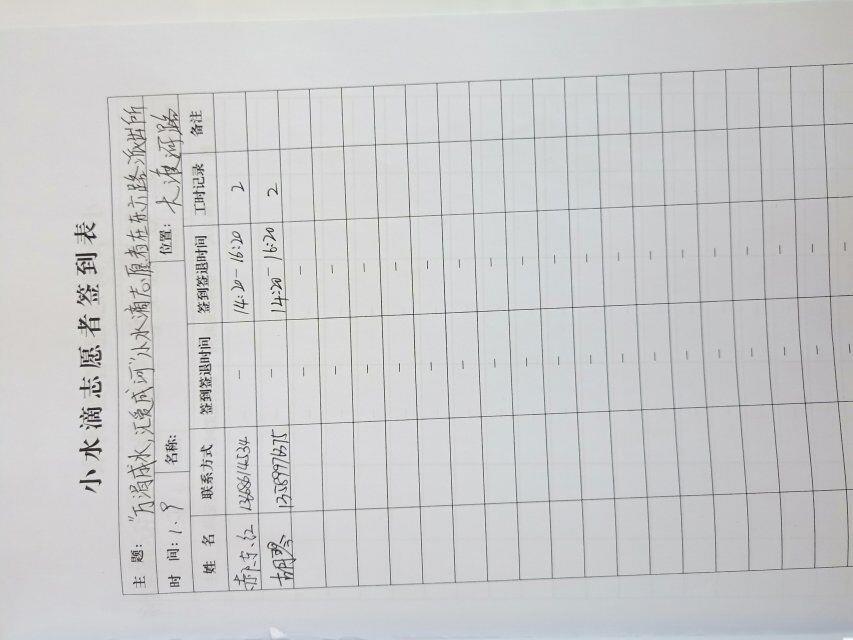 小水滴志愿者签到表
主 题: "万涓成水,汇爱成河"小水滴志愿者在东六路派出所
时 间: 1.9 名称: 位置: 大渡河路
姓 名 联系方式 签到签退时间 签到签退时间 工时记录 备注
东红 — 14:20-16:20 2
胡琴 13589976375 — 14:20-16:20 2